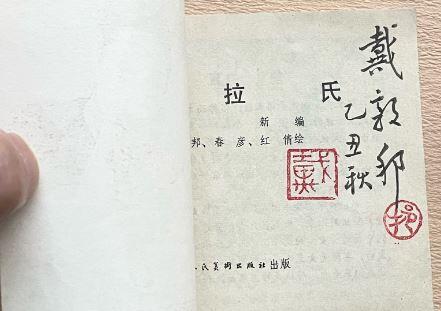 拉 氏
新 编
邦、春 彦、红 倩绘
民美术出版社出版
戴敦邦
乙丑秋
戴